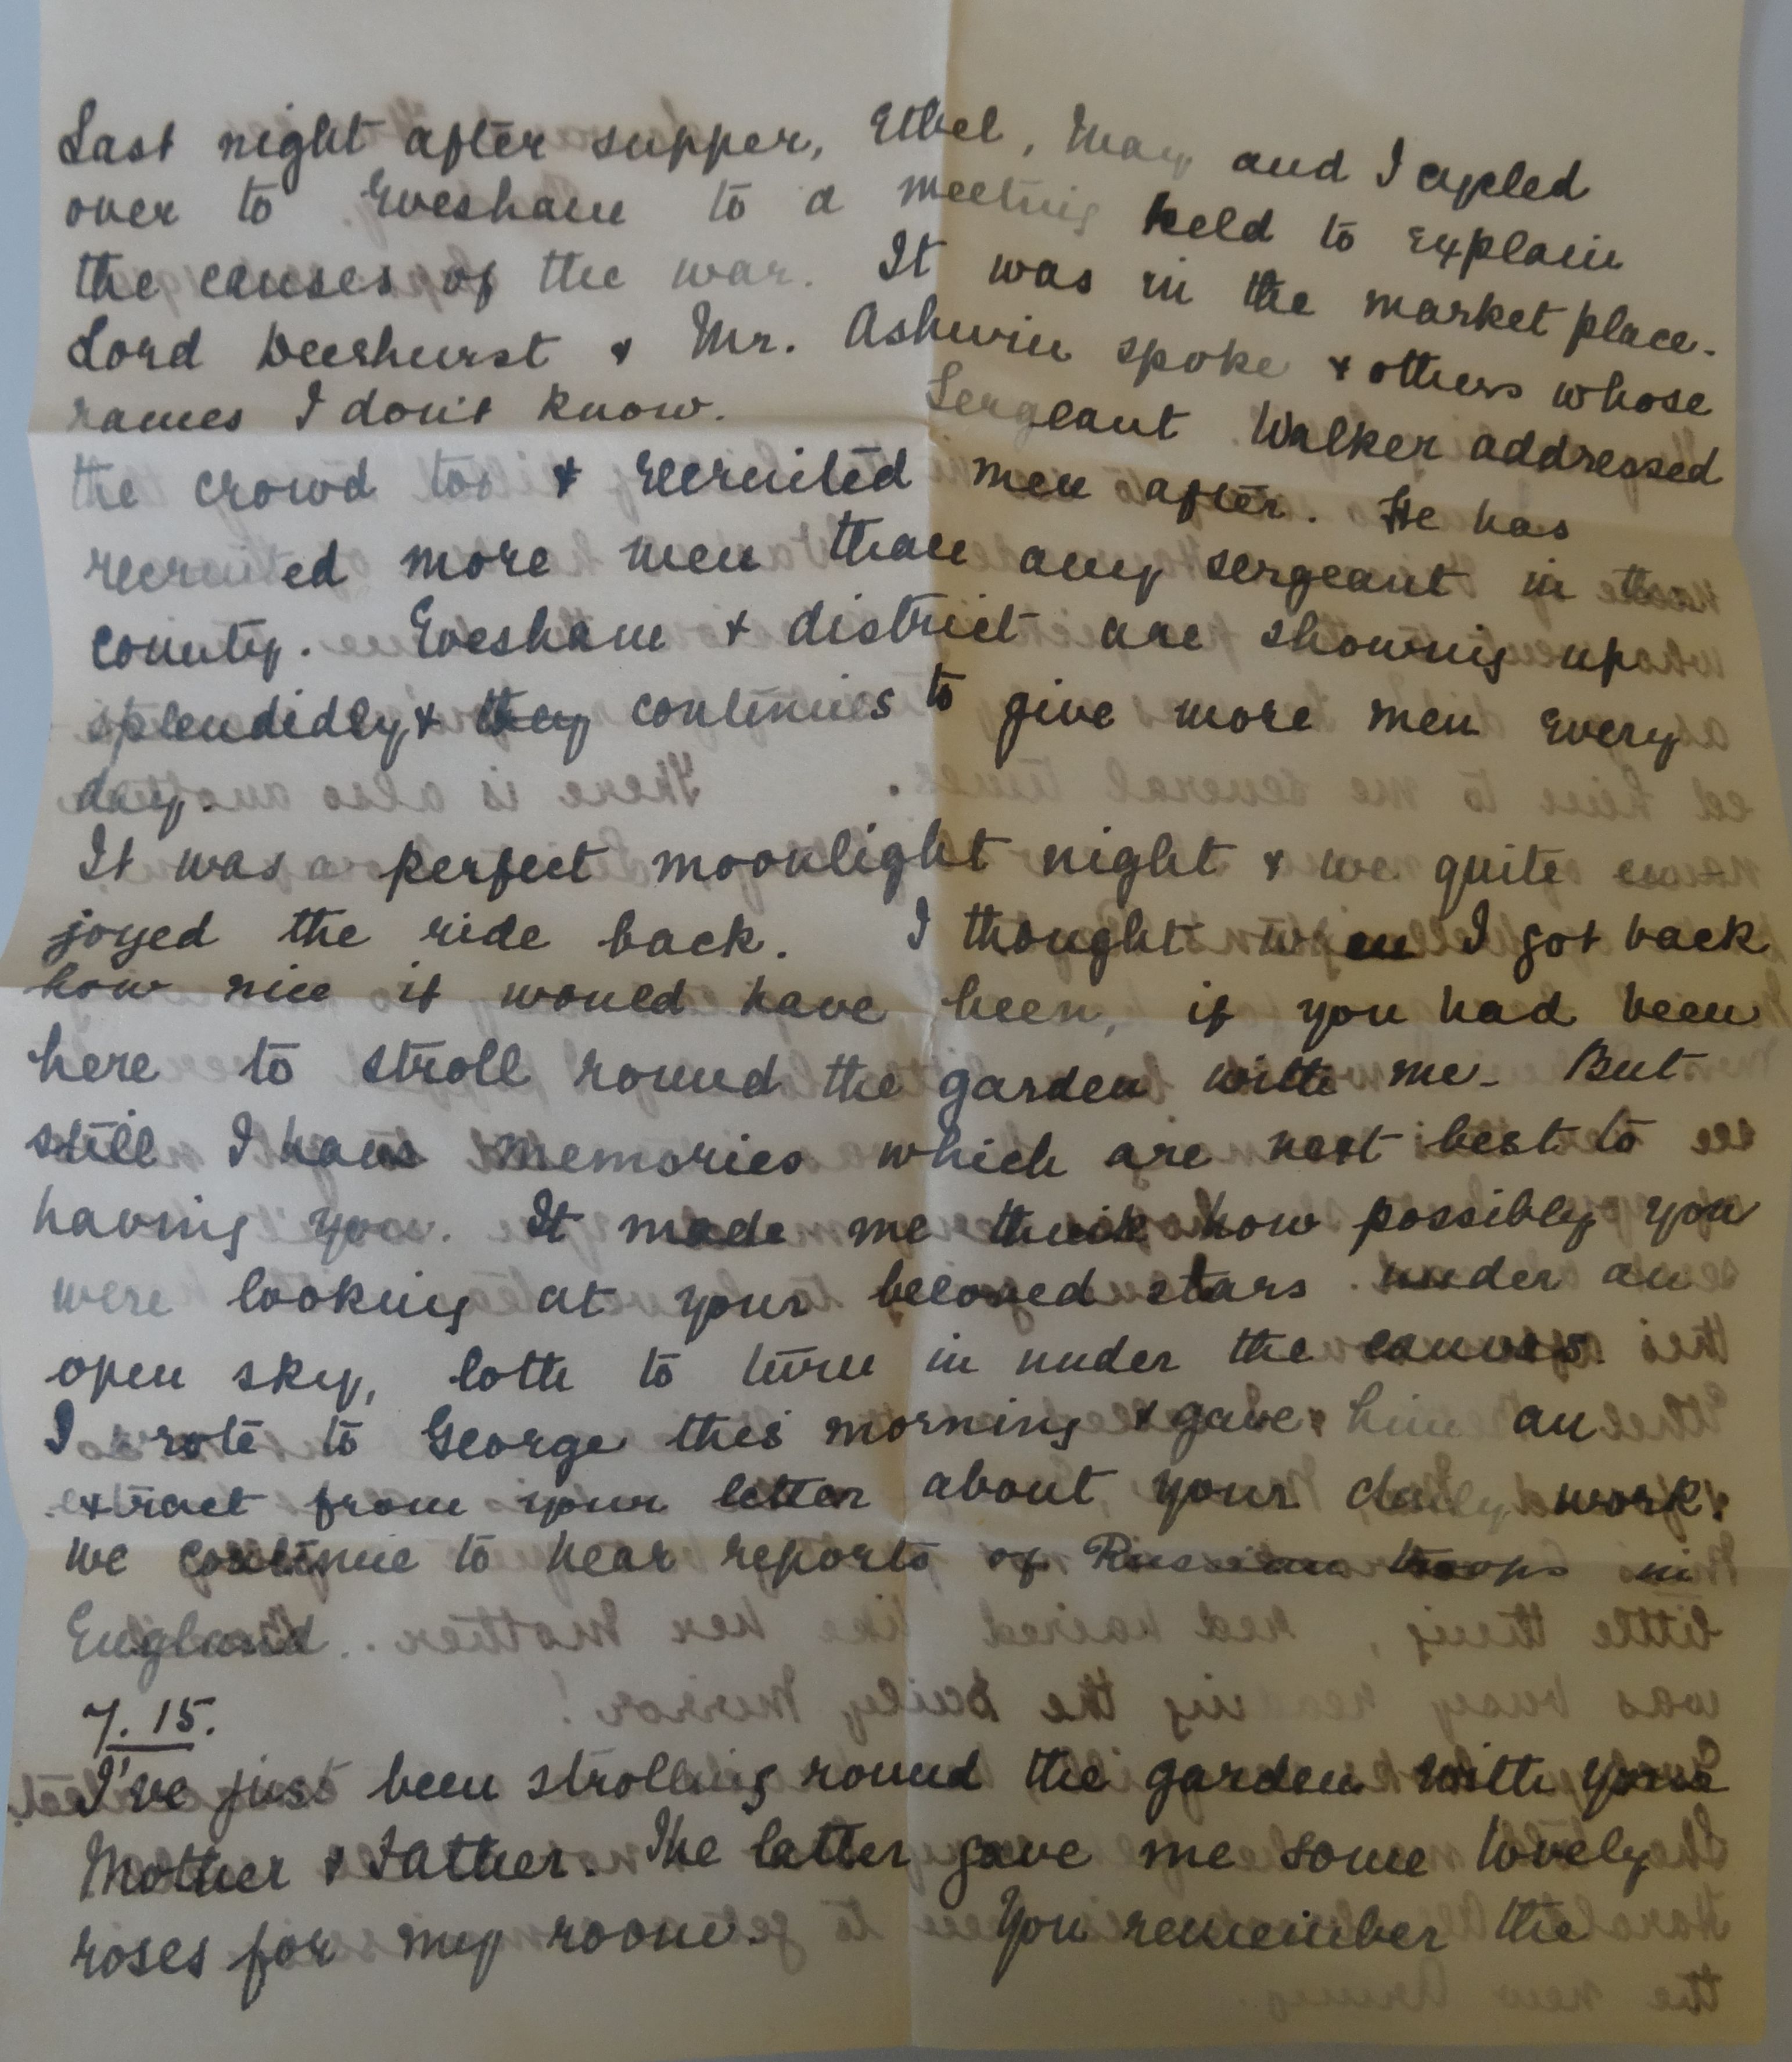 Last night after supper, Ethel, May and I cycled
over to Evesham to a meeting held to explain
the causes of the war. It was in the market place.
Lord Deerhurst & Mr. Ashwin spoke & others whose
names I don't know. Sergeant Walker addressed
the crowd too & recruited men after. He has
recruited more men than any sergeant in the
county. Evesham & district are showing up
splendidly & they continues to give more men every
day.
It was a perfect moonlight night & we quite en-
joyed the ride back. I thought when I got back
how nice it would have been, if you had been
here to stroll round the garden with me. But
still I have memories which are next best to
having you. It made me think how possibly you
were looking at your beloved stars under an
open sky, loth to turn in under the canvas.
I wrote to George this morning & gave him an
extract from your letter about your daily work.
We continue to hear reports of Russian troops in
England.
7.15.
I've just been strolling round the garden with your
Mother & Father. The latter gave me some lovely
roses for my room. You remember the